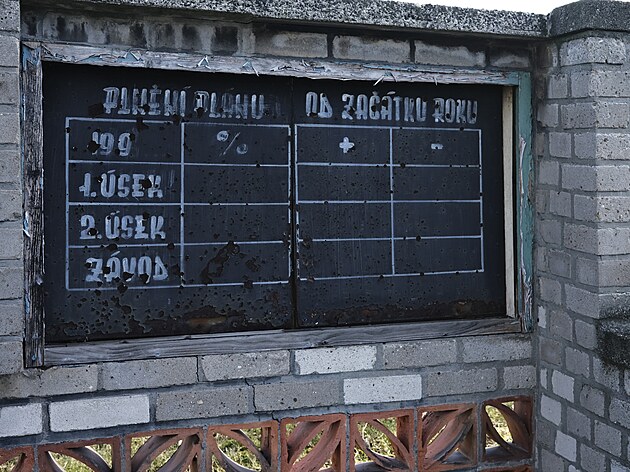 PLNĚNÍ PLÁNU OD ZAČÁTKU ROKU
% + -
1. ÚSEK
2. ÚSEK
ZÁVOD